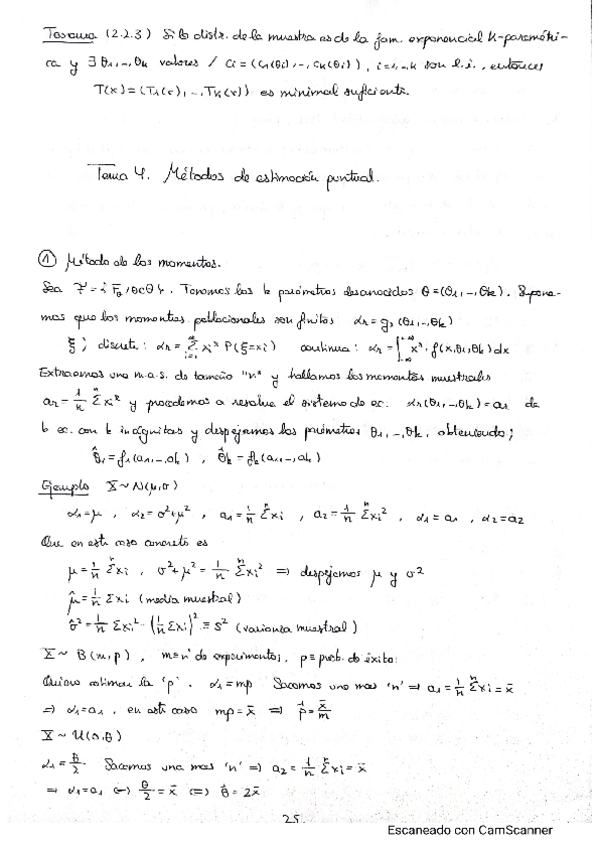 Teorema (2.2.3) Si la distr. de la muestra es de la fam. exponencial k-paramétri-
ca y ∃ θ1,-,θk valores / ci = (c1(θi),-,ck(θi)), i=1,-,k son l.i., entonces
T(x) = (T1(x),-,Tk(x)) es minimal suficiente.
Tema 4. Métodos de estimación puntual.
① Método de los momentos.
Sea F = { Fθ, θ∈Θ }. Tenemos los k parámetros desconocidos θ=(θ1,-,θk). Supone-
mos que los momentos poblacionales son finitos αr = gr(θ1,-,θk)
ξ; discreta: αr = Σ xi^r P(ξ=xi) continua: αr = ∫ x^r · f(x,θ1,θk) dx
Extraemos una m.a.s. de tamaño "n" y hallamos los momentos muestrales
ar = 1/n Σ xi^r y procedemos a resolver el sistema de ec. αr(θ1,-,θk) = ar de
k ec. con k incógnitas y despejamos los parámetros θ1,-,θk, obteniendo;
θ̂1 = f1(a1,-,ak), θ̂k = fk(a1,-,ak)
Ejemplo X ~ N(μ,σ)
α1 = μ, α2 = σ²+μ², a1 = 1/n Σ xi, a2 = 1/n Σ xi², α1 = a1, α2 = a2
Que en este caso concreto es
μ = 1/n Σ xi, σ²+μ² = 1/n Σ xi² ⇒ despejamos μ y σ²
μ̂ = 1/n Σ xi (media muestral)
σ̂² = 1/n Σ xi² - (1/n Σ xi)² = s² (varianza muestral)
X ~ B(m,p), m = nº de experimentos, p = prob. de éxito:
Quiero estimar la 'p'. α1 = mp Sacamos una mas 'n' ⇒ a1 = 1/n Σ xi = x̄
⇒ α1 = a1, en este caso mp = x̄ ⇒ p̂ = x̄/m
X ~ U(0,θ)
α1 = θ/2. Sacamos una mas 'n' ⇒ a2 = 1/n Σ xi = x̄
⇒ α1 = a1 ⇔ θ/2 = x̄ ⇔ θ̂ = 2x̄
25
Escaneado con CamScanner